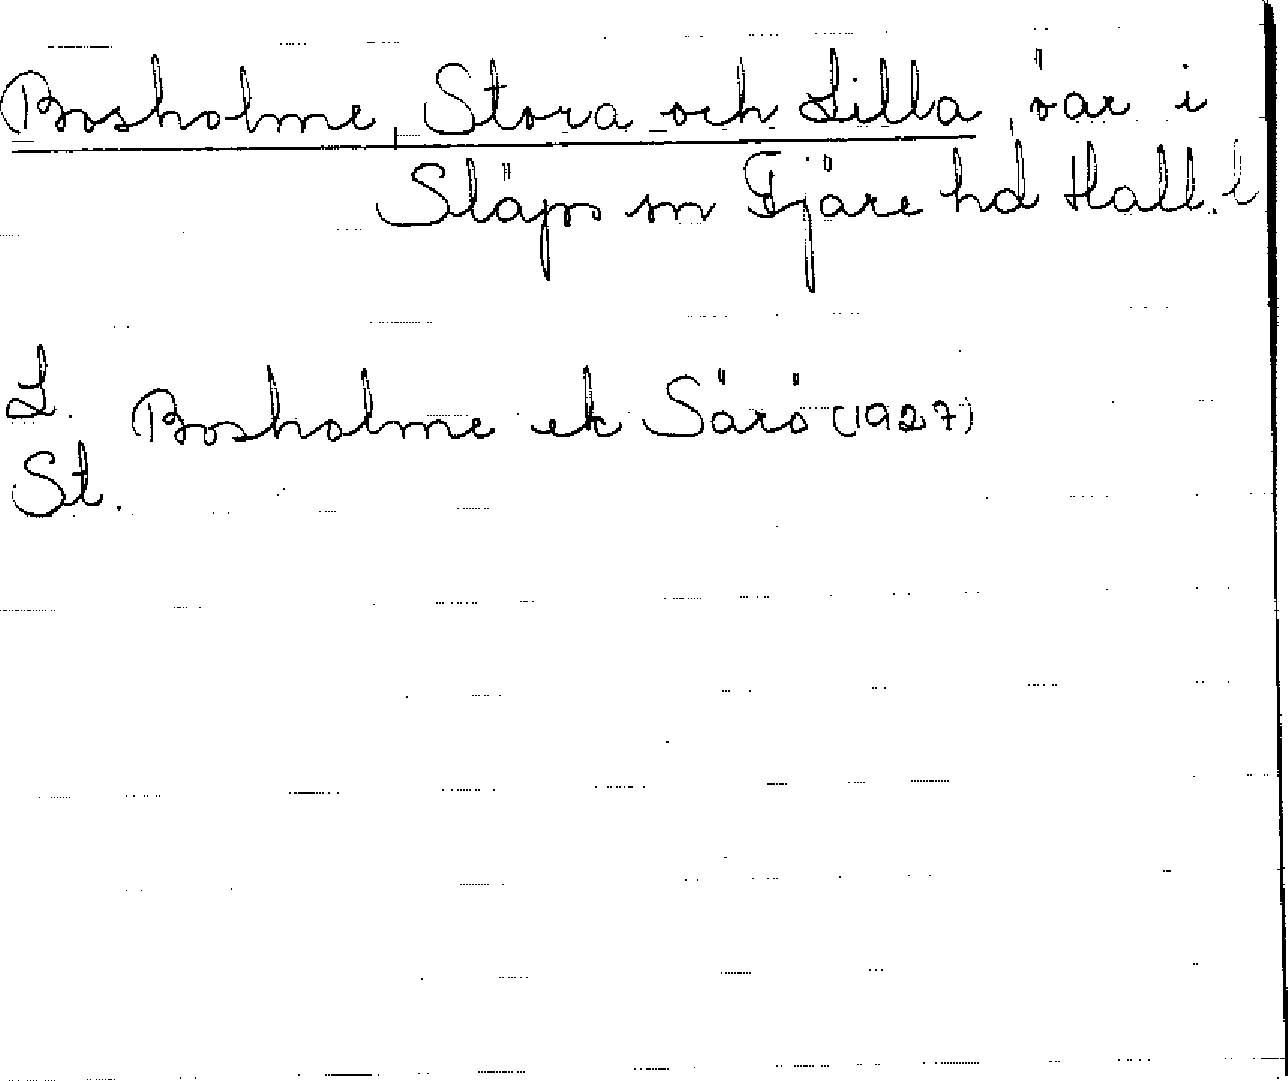 Bosholme, Stora och Lilla, öar i
Släps sn Fjäre hd Hall. l
L.
Bosholme ek Särö (1927)
St.